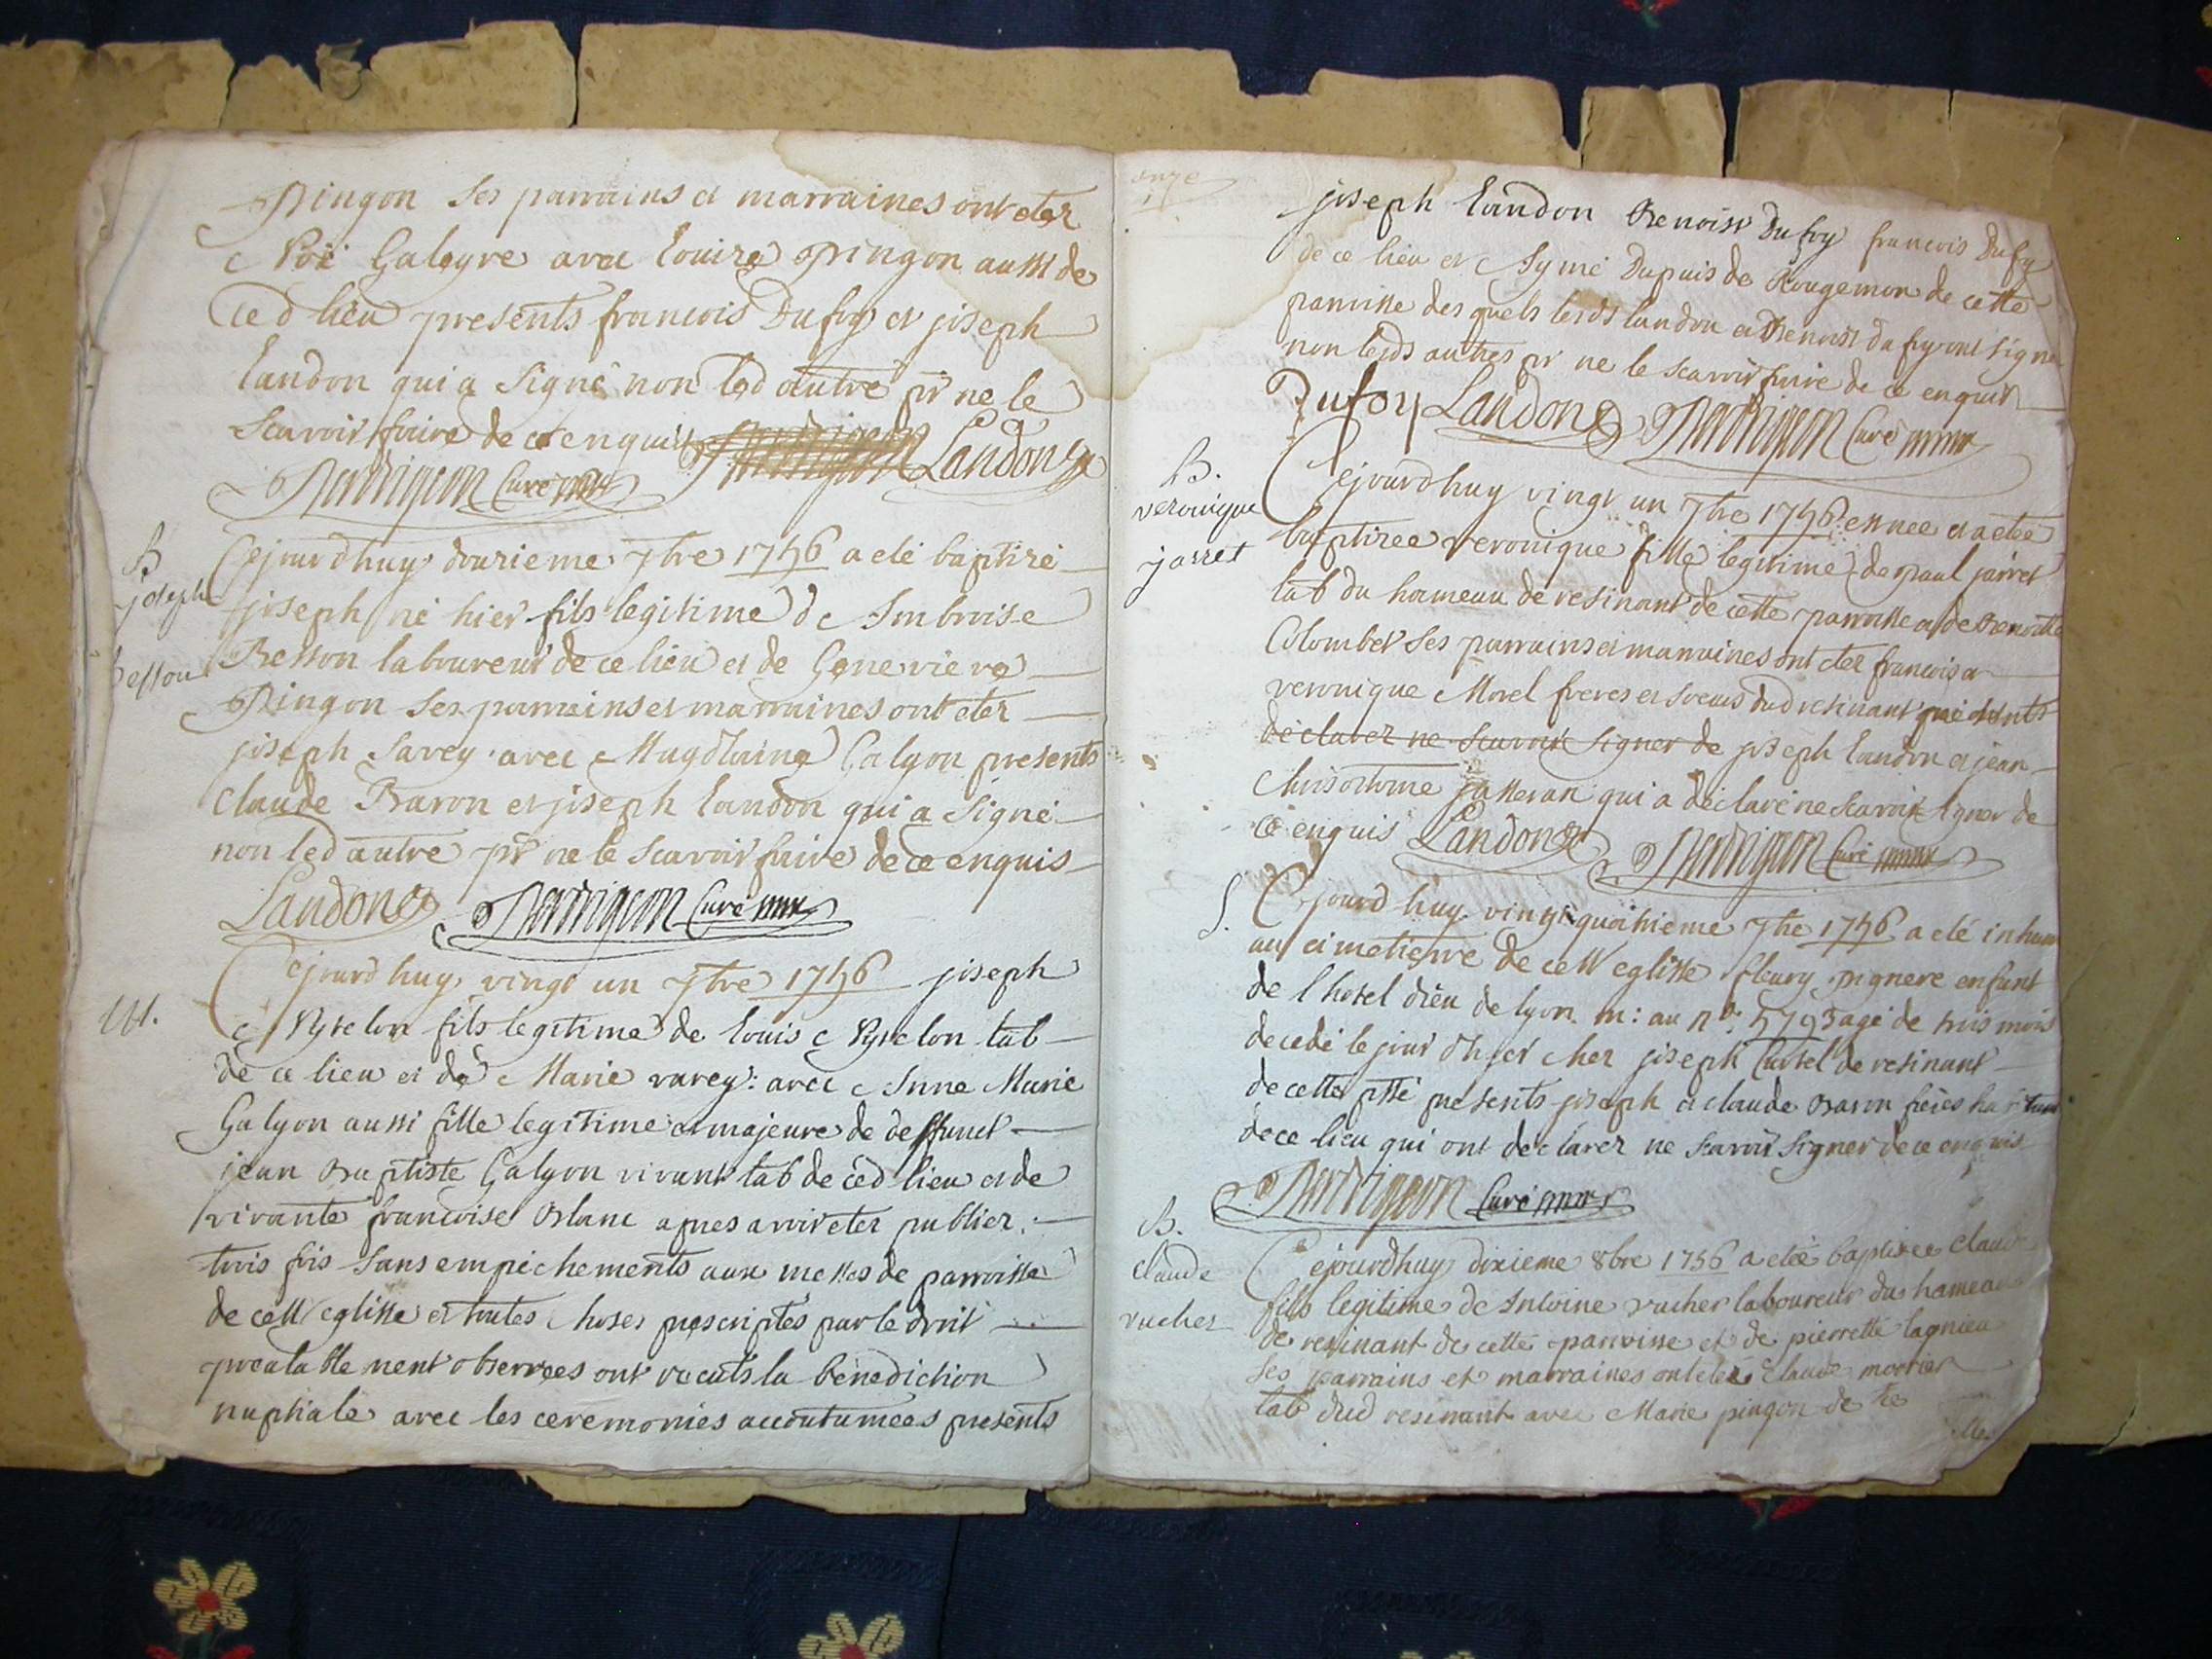 Pingon Ses parrains et marraines ont eter
Noë Galeyre avec Louize Pingon aussi de
Ced lieu presents francois Dufoy et joseph
Landon qui a Signé non led autre pr ne le
Scavoir faire de ce enquis Landon
curé
B
joseph
besson
Cejourdhuy douzieme 7bre 1756 a eté baptizé
joseph né hier fils legitime de Ambroise
Besson laboureur de ce lieu et de Genevieve
Pingon Ses parrains et marraines ont eter
joseph Savey avec Magdlaine Galyon presents
Claude Baron et joseph Landon qui a Signé
non led autre pr ne le Scavoir faire de ce enquis
Landon Curé
M.
Cejourdhuy vingt un 7bre 1756 joseph
fils legitime de Louis lab
de ce lieu et de Marie varey: avec Anne Marie
Galyon aussi fille legitime et majeure de deffunct
jean Baptiste Galyon vivant lab de ced lieu et de
vivante francoise Blanc apres avoir eter publier
trois fois Sans empechements aux messes de parroisse
de cette eglisse et toutes choses prescriptes par le droit
prealablement observees ont recuts la benediction
nuptiale avec les ceremonies accoutumees presents
onze
11
joseph Landon Benoist Dufoy francois Dufoy
de ce lieu et Aymé Dupuis de Rougemon de cette
parroisse des quels lesds Landon et Benoist dufoy ont signe
non lesds autres pr ne le scavoir faire de ce enquis
Dufoy Landon Curé
B.
veronique
jarret
Cejourdhuy vingt un 7bre 1756 est nee et a etée
baptizee veronique fille legitime de paul jarret
lab du hameau de resinant de cette parroisse et de Benoitte
Colombet Ses parrains et marraines ont eter francois et
veronique Morel freres et soeurs dud resinant presents
declarer ne Scavoir Signer de joseph Landon et jean
Chrisostome qui a declaré ne Scavoir Signer de
ce enquis Landon Curé
S.
Cejourdhuy vingt quatrieme 7bre 1756 a eté inhum
au cimetierre de cette eglisse fleury pignere enfant
de l hotel dieu de lyon m: au no: 5793 agé de trois mois
decedé le jour dhier chez joseph Curtel de resinant
de cette psse presents joseph et claude Baron freres
de ce lieu qui ont declarer ne Scavoir Signer de ce enquis
Curé
B.
claude
vucher
Cejourdhuy dixieme 8bre 1756 a etée baptisee Claude
fils legitime de Antoine vucher laboureur du hameau
de resinant de cette parroisse et de pierrette lagnieu
ses parrains et marraines ont etée Claude mortier
lab dud resinant avec Marie pingon de ce